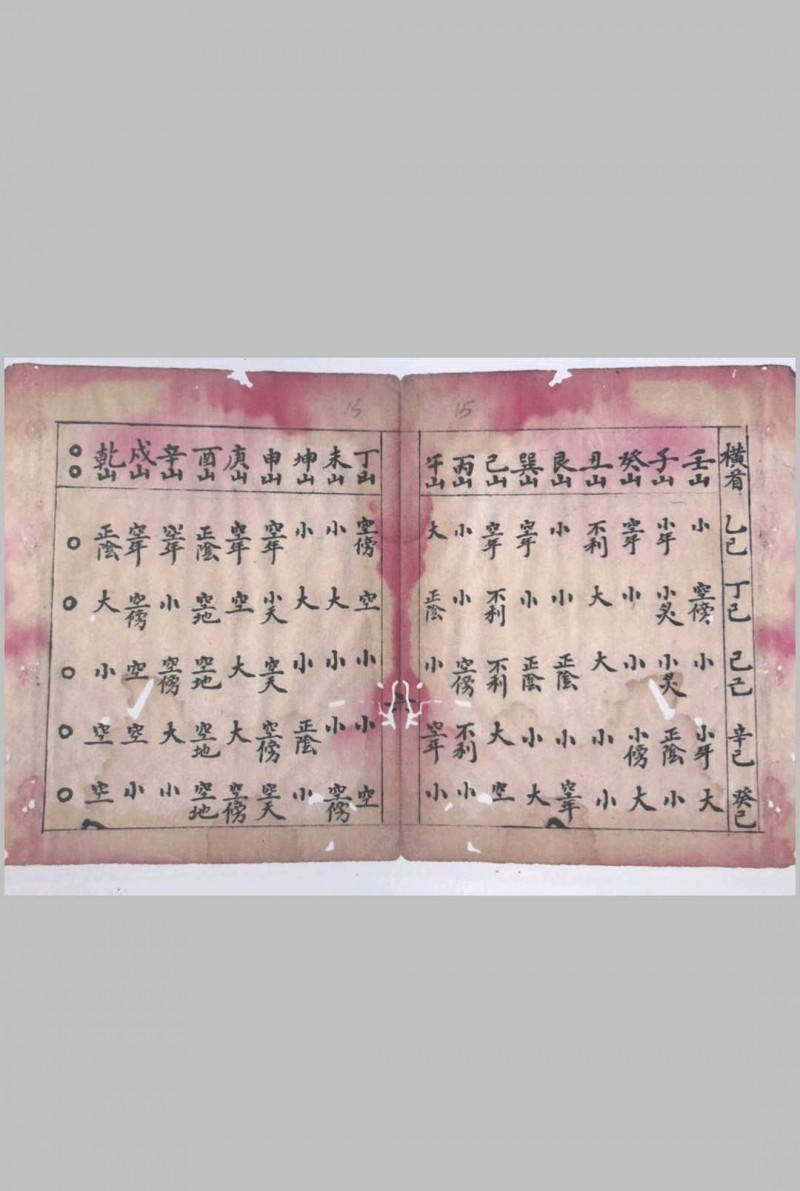 15
横看 壬山 子山 癸山 丑山 艮山 巽山 巳山 丙山 午山
乙巳 小 小年 空年 不利 小 空年 空年 小 大
丁巳 空傍 小炙 小 大 小 小 不利 小 正陰
己巳 小 小炙 小 大 正陰 正陰 不利 空傍 小
辛巳 小年 正陰 小傍 小 小 小 大 不利 空年
癸巳 大 小 大 小 空年 大 空 小 小
16
丁山 未山 坤山 申山 庚山 酉山 辛山 戍山 乾山 〇〇
空傍 小 小 空年 空年 正陰 空年 空年 正陰 〇
空 大 大 小天 空 空地 小 空傍 大 〇
小 小 小 空天 大 空地 空傍 空 小 〇
小 小 正陰 空傍 大 空地 大 空 空 〇
空 空傍 小 空天 空傍 空地 小 小 空 〇